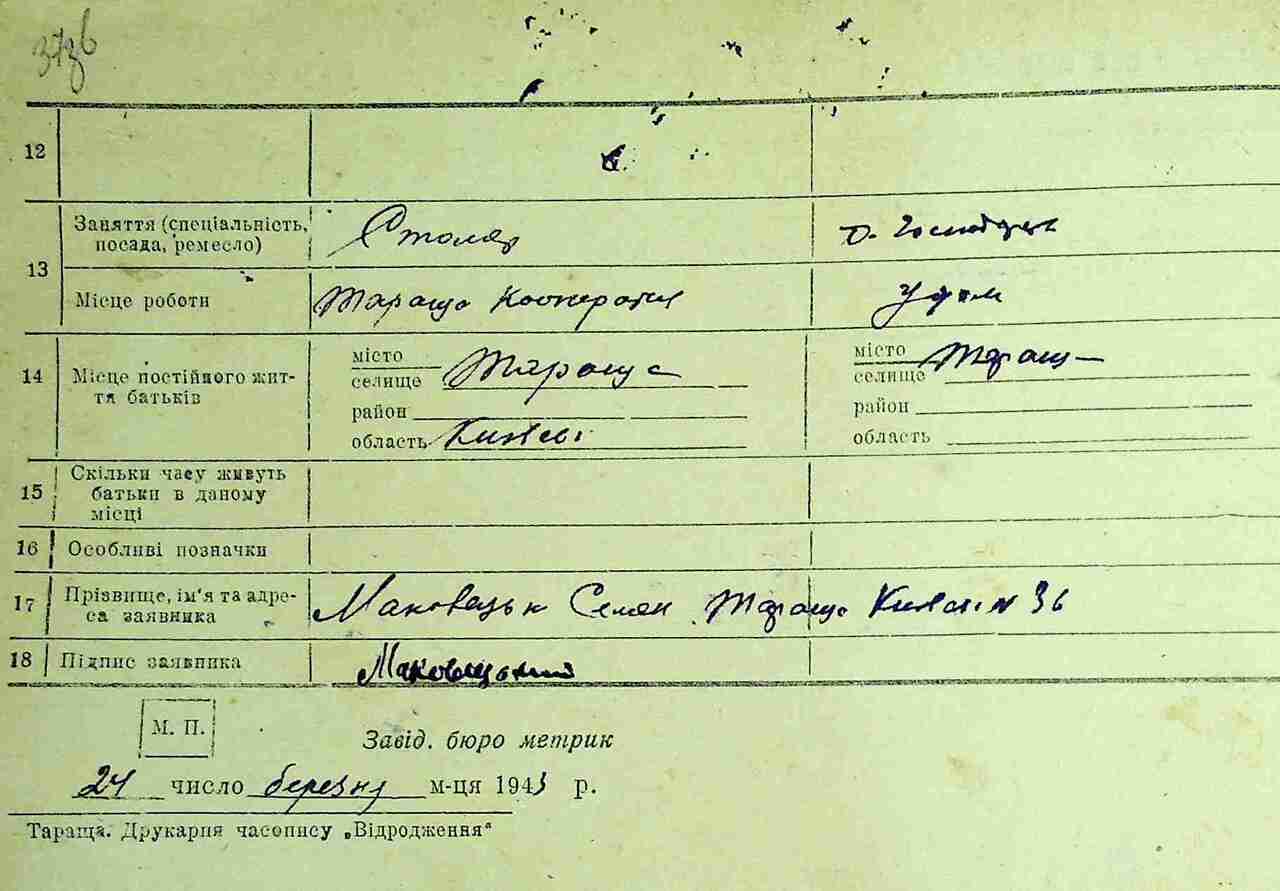 12
Заняття (спеціальність, посада, ремесло) Столяр д. господарк
13
Місце роботи Тараща Кооператив У дом
14 Місце постійного життя батьків
місто
селище Тараща
район
область Київсь
місто Тараща
селище
район
область
15 Скільки часу живуть
батьки в даному
місці
16 Особливі позначки
17 Прізвище, ім'я та адре-
са заявника Маковецьк Семен Тараща № 36
18 Підпис заявника Маковецький
М. П.
Завід. бюро метрик
24 число березня м-ця 1943 р.
Тараща. Друкарня часопису „Відродження“